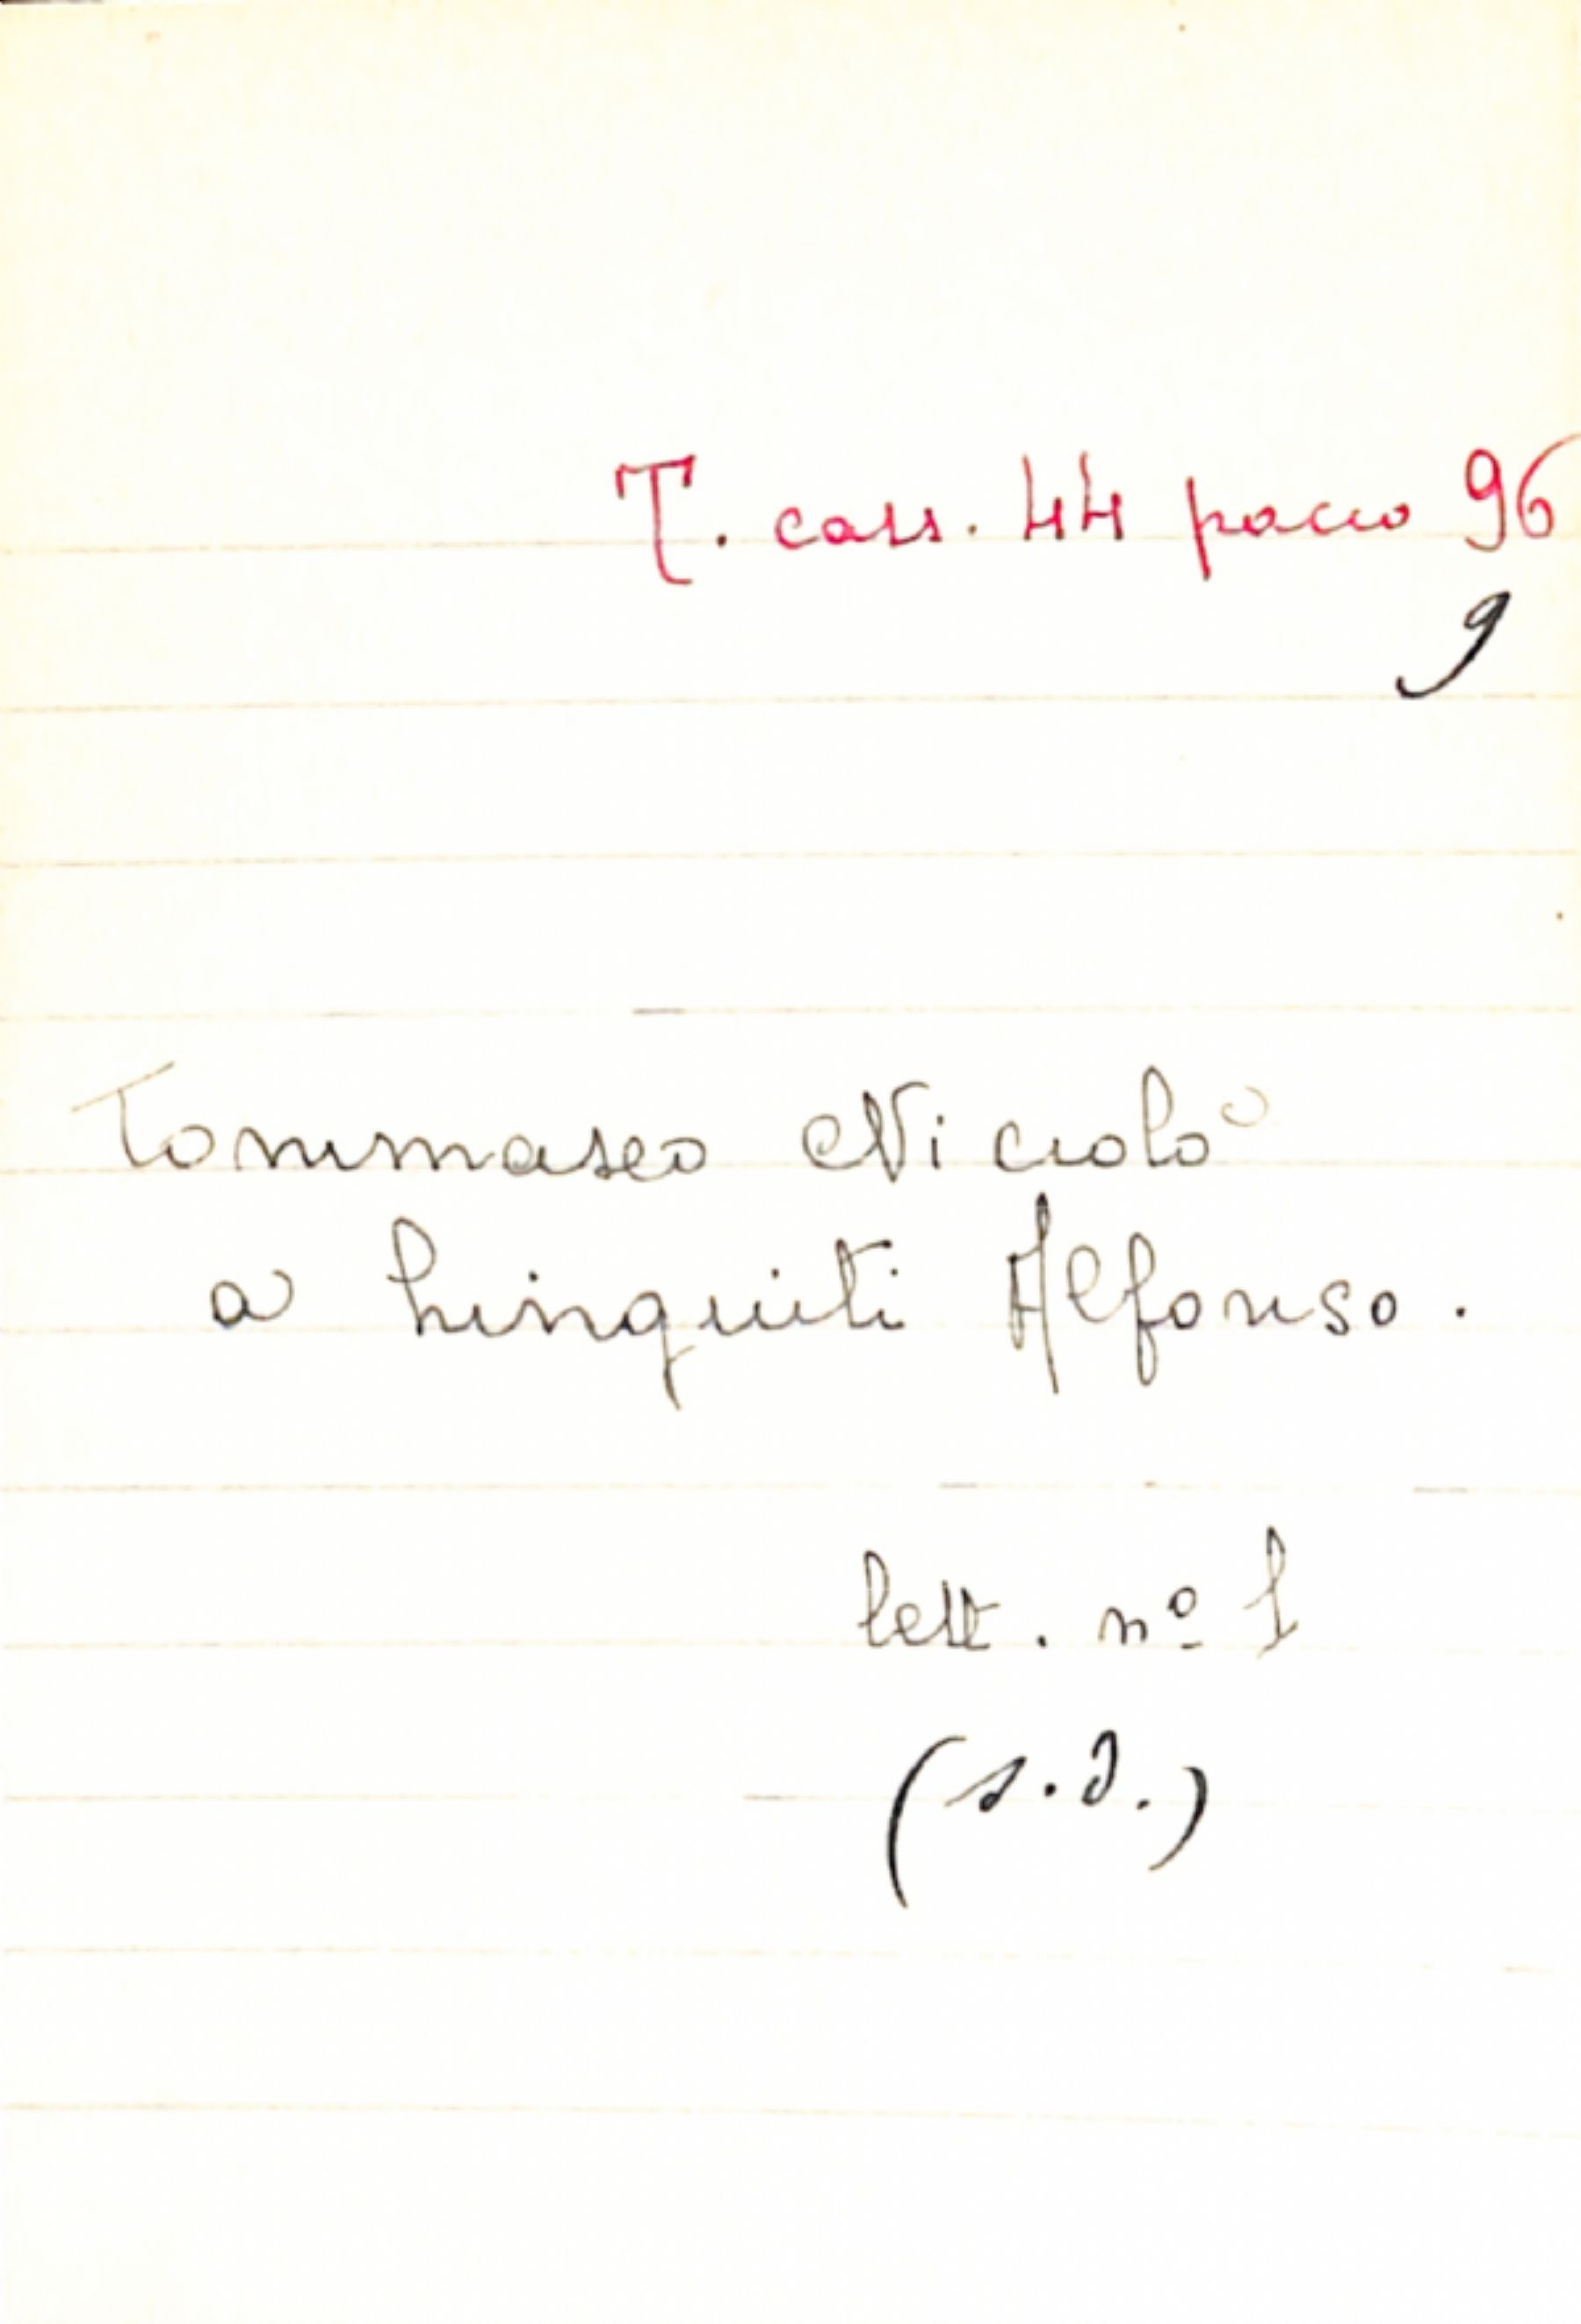 T. cass. 44 pacco 96
9
Tommaseo Niccolò
a Linguiti Alfonso.
lett. nº 1
(s.d.)